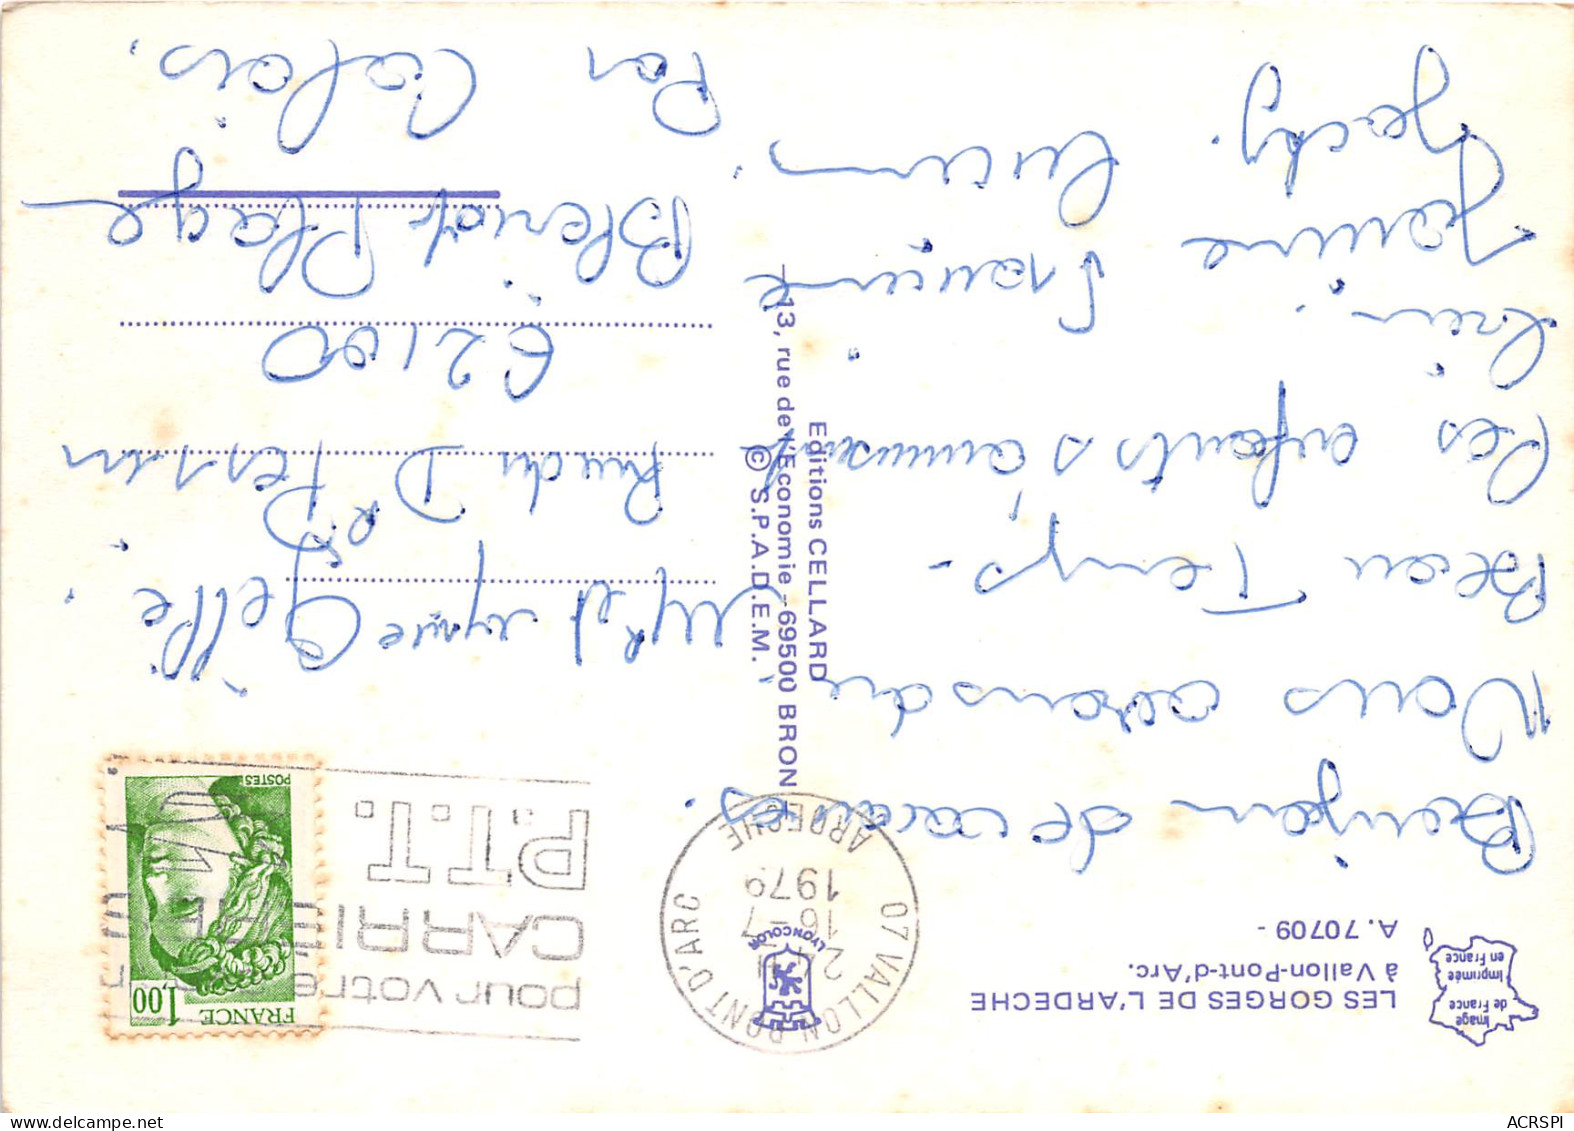 LES GORGES DE L'ARDECHE
à Vallon-Pont-d'Arc.
A. 70709 -
Image
de France
Imprimée
en France
Bonjour de vacances.
Nous avons du
Beau Temps -
Les enfants s'amusent
bien.
Janine Francine Lucien
Jacky.
07 VALLON PONT D'ARC
ARDECHE
16 -7
1979
LYONCOLOR
Editions CELLARD
13, rue de l'Economie - 69500 BRON
© S.P.A.D.E.M.
pour votre
CARRIERE
P.T.T.
FRANCE
1,00
POSTES
Mr et Mme Gellé.
Rue du Dr
62100
Blériot Plage
Pas Calais.
ACRSPI